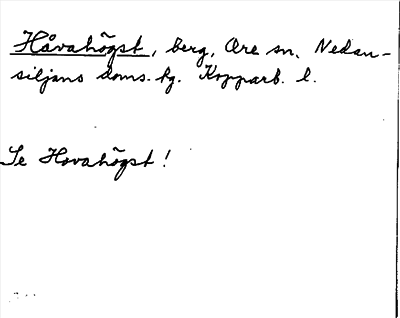 Håvahögst, berg, Ore sn, Nedan-
siljans doms. hg. Kopparb. l.
Se Hovahögst!